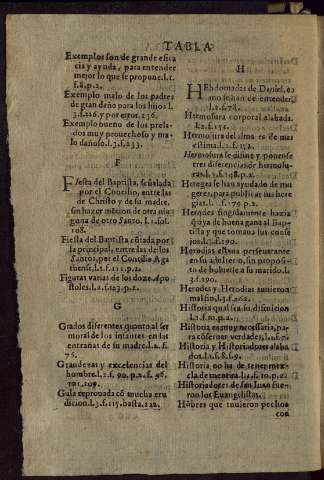 TABLA
Exemplos son de grande efica
cia y ayuda, para entender
mejor lo que se propone. l.1.
f.8. p.2.
Exemplo malo de los padres
de gran daño para los hijos l.
3. f.226. y por estor. 236.
Exemplo bueno de los prela-
dos muy prouechoso y ma-
lo dañoso. l.3. f.233.
F
Fiesta del Baptista, señalada
por el Concilio, entre las
de Christo y de su madre,
sin hazer mēcion de otra nin
guna de otro Santo. l.1. fol.
108.
Fiesta del Baptista cōtada por
la principal, entre las de los
Santos, por el Concilio Aga
thense, l.2. f.111. p.2.
Figuras varias de los doze Apo
stoles, l.2. f.123. p.2.
G
Grados diferentes quanto al ser
moral de los infantes en las
entrañas de su madre. l.2. f.
75.
Grandezas y excelencias del
hombre. l.2. f. 90. p.2. f. 96.
101. 109.
Gula reprouada cō mucha eru
dicion. l.3. f.215. hasta. 222.
H
Hebdomadas de Daniel, co
mo se han de entender,
l.2. f.78.
Hermosura corporal alabada.
l.2. f.151.
Hermosura del alma es de mas
estima. l.2. f.152.
Hermosura se difine y ponense
tres diferencias de hermosu-
ras. l.3. f.148. p.2.
Hereges se han ayudado de mu
geres, para publicar sus here
gias. l. f.170 p.2.
Herodes fingidamente hazia
q̃ oya de buena gana al Bap-
tista y que tomaua sus conse
jos. l.3. f.190.
Herodias estaua perseuerante
en su adulterio, sin proposi-
to de boluerse a su marido. l.
3. f.190.
Herodes y Herodias murieron
mal fin, l.3. f.262.
Historia qual sea su difinicion
l.1. f.10. p.2.
Historia es muy necessaria, pa-
ra cōseruar verdades, l.1. f.7.
Historia y Historiadores alaba
dos. l.1. f.8. f.9.
Historia no ha de tener mez-
cla de mentira l.1. f.10. p.2.
Historiadores de san Iuan fue-
ron los Euangelistas.
Hōbres que tuuieron pechos
con